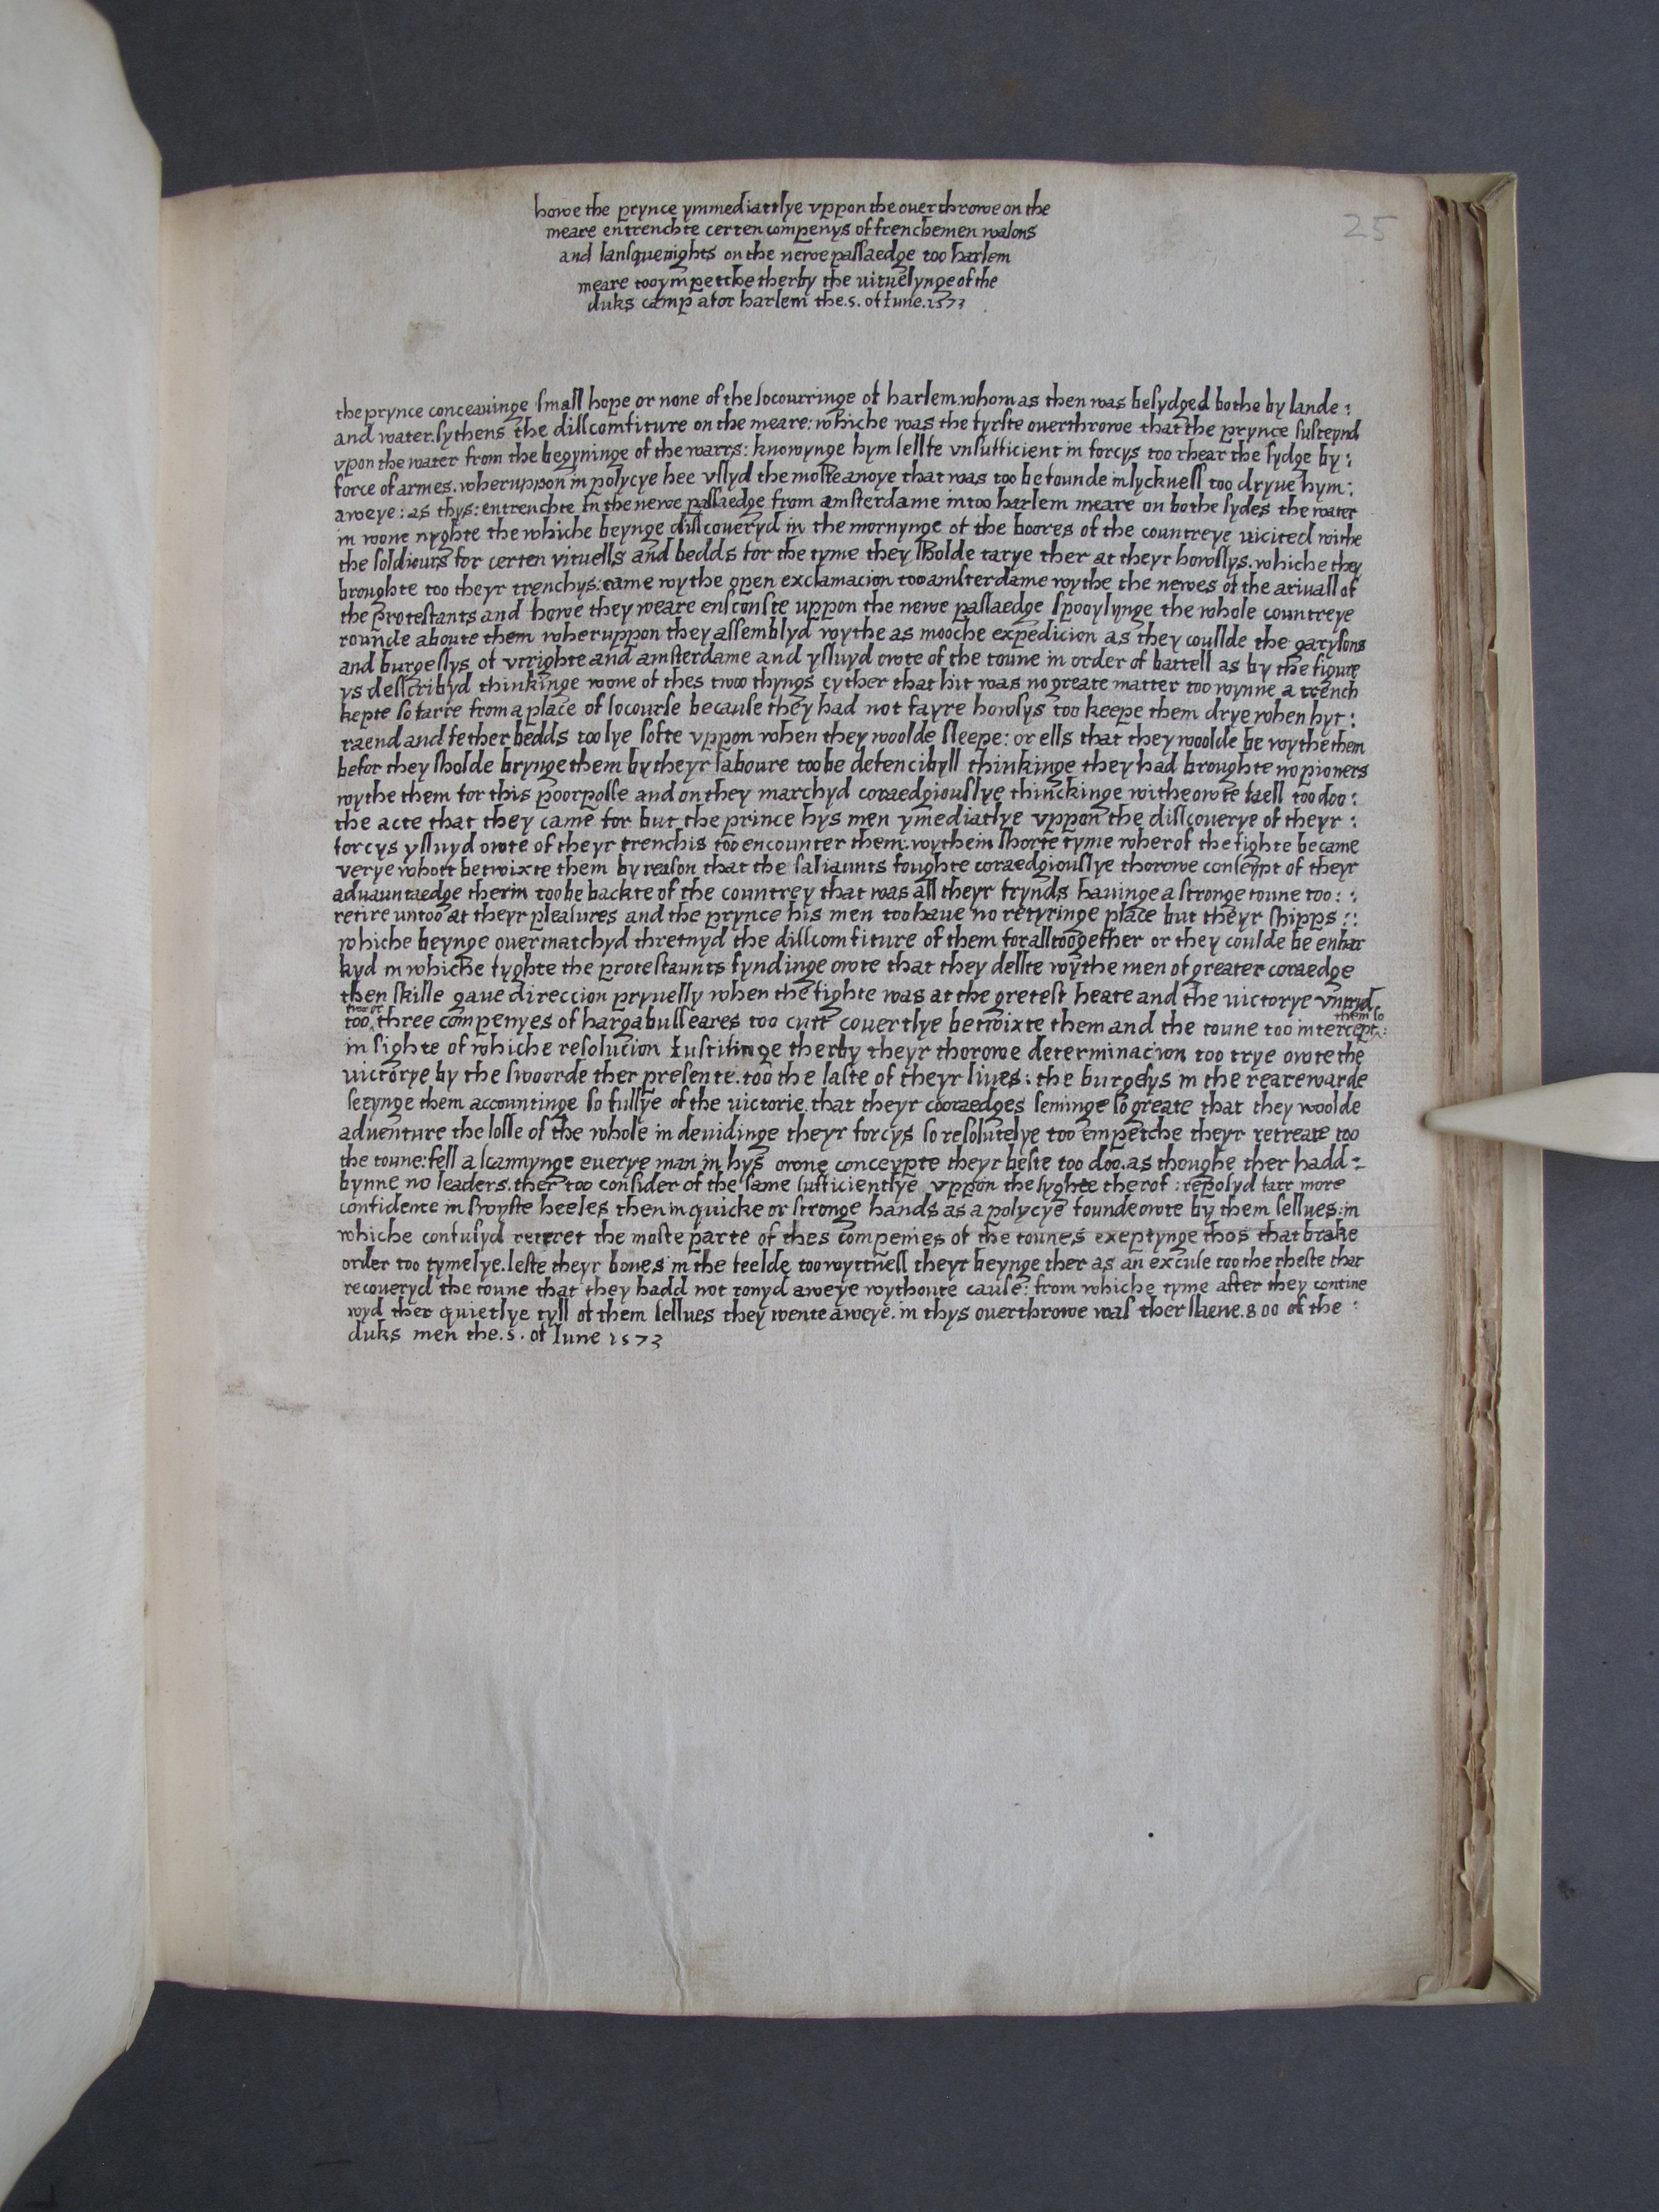 howe the prynce ymmediattlye vppon the ouerthrowe on the
meare entrenchte certen compenys of frenchemen walons
and lansquenights on the newe passaedge too harlem
meare too ympetche therby the vituelynge of the
duks camp afor harlem the .5. of Iune .1573
25
the prynce conceauinge small hope or none of the socourringe of harlem whom as then was besydged bothe by lande :
and water. sythens the disscomfiture on the meare: whiche was the fyrste ouerthrowe that the prynce susteynd
vpon the water from the begyninge of the warrs: knowynge hym sellfe vnsufficient in forcys too rhear the sydge by :
force of armes. wheruppon in polycye hee vssyd the moste anoye that was too be founde in lyckness too dryue hym :
aweye : as thys: entrenchte In the newe passaedge from amsterdame in too harlem meare on bothe sydes the water
in wone nyghte the whiche beynge disscoueryd in the mornynge of the boores of the countreye vicited withe
the soldiours for certen vituells and bedds for the tyme they sholde tarye ther at theyr howssys. whiche they
broughte too theyr trenchys: came wythe open exclamacion too amsterdame wythe the newes of the ariuall of
the protestants and howe they weare ensconste uppon the newe passaedge spooylynge the whole countreye
rounde aboute them wheruppon they assemblyd wythe as mooche expedicion as they coullde the garysons
and burgessys of vtrighte and amsterdame and yssuyd owte of the toune in order of battell as by the figure
ys desscribyd thinkinge wone of thes twoo thyngs eyther that hit was no greate matter too wynne a trench
kepte so farre from a place of socourse because they had not fayre howsys too keepe them drye when hyt :
raend and fether bedds too lye softe vppon when they woolde sleepe: or ells that they woolde be wythe them
befor they sholde brynge them by theyr laboure too be defencibyll thinkinge they had broughte no pioners
wythe them for this poorposse and on they marchyd coraedgiouslye thinckinge witheowte faell too doo :
the acte that they came for but the prince hys men ymediatlye vppon the disscouerye of theyr :
forcys yssuyd owte of theyr trenchis too encounter them: wythein shorte tyme wherof the fighte became
verye whott betwixte them by reason that the saliaunts foughte coraedgiouslye thorowe conseypt of theyr
aduauntaedge therin too be backte of the countrey that was all theyr frynds hauinge a stronge toune too : :
retire untoo at theyr pleasures and the prynce his men too haue no retyringe place but theyr shipps : :
whiche beynge ouermatchyd thretnyd the disscomfiture of them for alltoogether or they coulde be enbar
kyd in whiche fyghte the protestaunts fyndinge owte that they dellte wythe men of greater coraedge
then skille gaue direccion pryuelly when the fighte was at the gretest heate and the uictorye vntryd
twoo or
them so
too three compenyes of hargabulleares too cutt couertlye betwixte them and the toune too intercept :
in sighte of whiche resolucion Iustifinge therby theyr thorowe determinacion too trye owte the
uictorye by the swoorde ther presente. too the laste of theyr liues: the burgesys in the rearewarde
seeynge them accountinge so fullye of the uictorie. that theyr cooraedges seminge so greate that they woolde
aduenture the losse of the whole in deuidinge theyr forcys so resolutelye too empetche theyr retreate too
the toune: fell a scannynge euerye man in hys owne conceypte theyr beste too doo. as thoughe ther hadd :
bynne no leaders. ther too consider of the same sufficientlye vppon the syghte therof : reposyd farr more
confidence in swyfte heeles then in quicke or stronge hands as a polycye founde owte by them sellues: in
whiche confusyd retret the moste parte of thes compenies of the tounes exeptynge thos that brake
order too tymelye. lefte theyr bones in the feelde too wyttness theyr beynge ther as an excuse too the rheste that
recoueryd the toune that they hadd not ronyd aweye wythoute cause: from whiche tyme after they contine
wyd ther quietlye tyll of them sellues they wente aweye. in thys ouerthrowe was ther slaene .800 of the :
duks men the .5. of Iune 1573